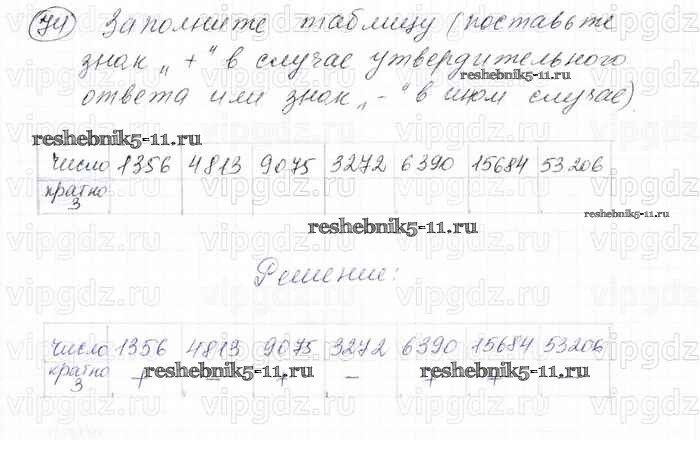 74 Заполните таблицу (поставьте
знак „+“ в случае утвердительного
reshebnik5-11.ru
ответа или знак „-“ в ином случае)
reshebnik5-11.ru
число 1356 4813 9075 3272 6390 15684 53206
кратно 3
reshebnik5-11.ru
reshebnik5-11.ru
Решение:
число 1356 4813 9075 3272 6390 15684 53206
кратно 3 + – + – + +
reshebnik5-11.ru reshebnik5-11.ru
vipgdz.ru